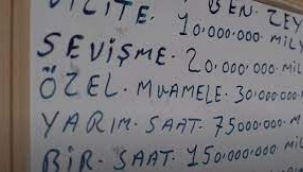 VİZİTE. BEN. ZEY
10.000.000 MİL
SEVİŞME. 20.000.000 MİL
ÖZEL. MUAMELE. 30.000.00
YARIM. SAAT. 75000.000. M
BİR. SAAT. 150.000.000 M